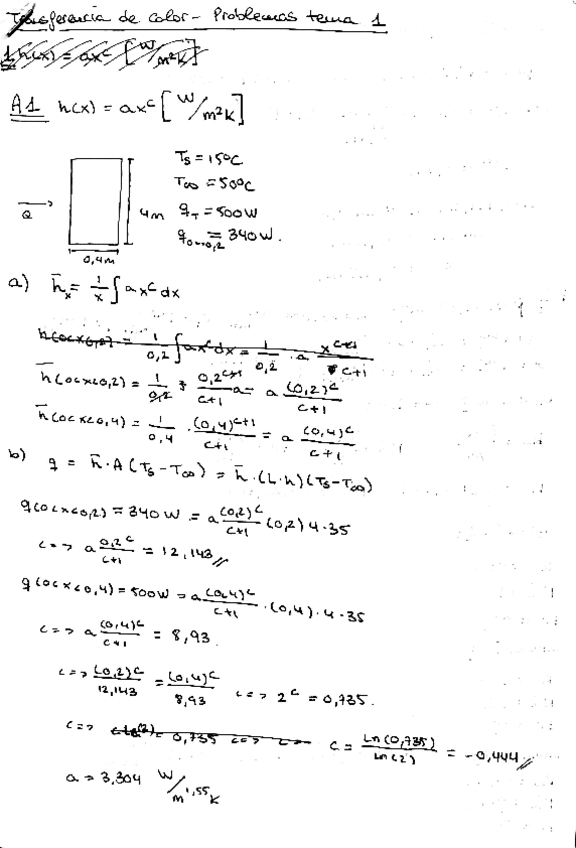 Transferencia de calor - Problemas tema 1
1 h(x) = ax^c [W/m²K]
A1 h(x) = ax^c [W/m²K]
Ts = 15°C
T∞ = 50°C
Q
4m
q_T = 500W
q_0→0,2 = 340W.
0,4m
a) h̄x = 1/x ∫ a x^c dx
h(0<x<0,2) = 1/0,2 ∫ax^c dx = 1/0,2 · a x^(c+1)/(c+1)
h̄(0<x<0,2) = 1/0,2 · 0,2^(c+1)/(c+1) a = a (0,2)^c/(c+1)
h̄(0<x<0,4) = 1/0,4 · (0,4)^(c+1)/(c+1) = a (0,4)^c/(c+1)
b) q = h̄·A(Ts-T∞) = h̄·(L·h)(Ts-T∞)
q(0<x<0,2) = 340W = a (0,2)^c/(c+1) (0,2) 4·35
<=> a 0,2^c/(c+1) = 12,143 //
q(0<x<0,4) = 500W = a (0,4)^c/(c+1) · (0,4) · 4·35
<=> a (0,4)^c/(c+1) = 8,93.
<=> (0,2)^c/12,143 = (0,4)^c/8,93 <=> 2^c = 0,735.
<=> 0,735 <=> c = Ln(0,735)/Ln(2) = -0,444 //
a = 3,304 W/m^1,55 K